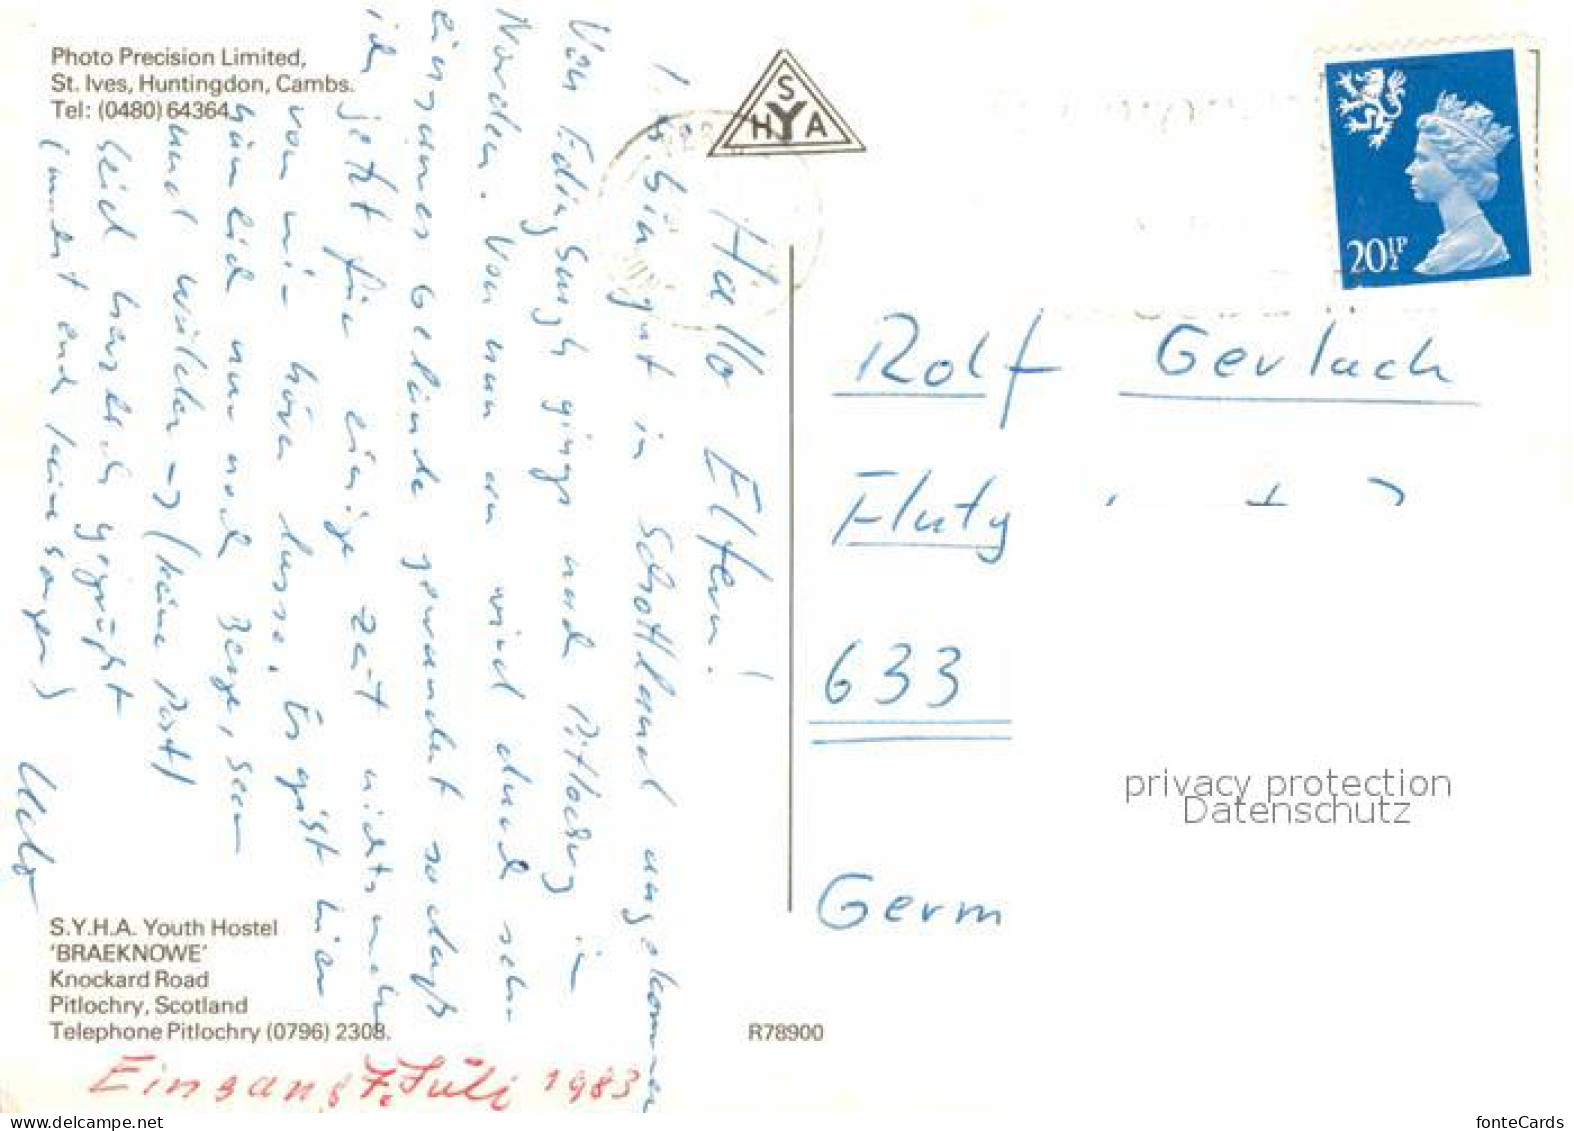 Photo Precision Limited,
St. Ives, Huntingdon, Cambs.
Tel: (0480) 64364.
S
H Y A
20½P
Hallo Eltern!
Bin gut in Schottland angekommen
Von Edinburgh gings nach Pitlochry in
Norden. Von nun an wird durch sehr
einsames Gelände gewandert sodaß
ich jetzt für einige Zeit nichts mehr
von mir hören lasse. Es gibt hier
nämlich nur noch Berge, Seen
und Wälder → (keine Post)
Seid herzlich gegrüßt
(macht euch keine Sorgen)
Rolf Gerlach
633
Germ
privacy protection
Datenschutz
S.Y.H.A. Youth Hostel
'BRAEKNOWE'
Knockard Road
Pitlochry, Scotland
Telephone Pitlochry (0796) 2308.
R78900
Eingang 7. Juli 1983
delcampe.net
fonteCards